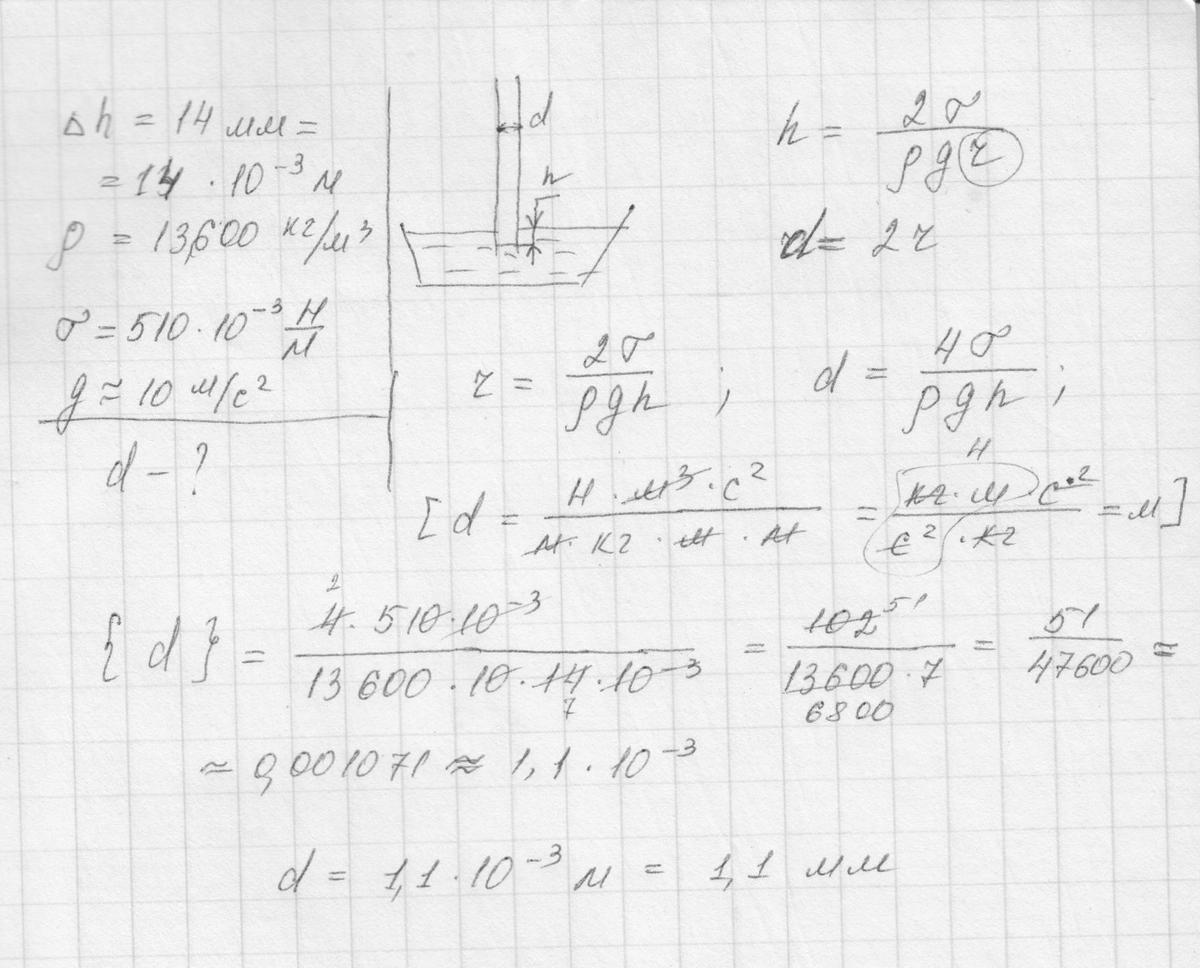 Δh = 14 мм =
= 14 · 10⁻³ м
ρ = 13,600 кг/м³
σ = 510 · 10⁻³ Н/м
g ≈ 10 м/с²
d - ?
d
h
h = 2σ / ρgr
d = 2r
r = 2σ / ρgh ; d = 4σ / ρgh ;
[d = Н · м³ · с² / м · кг · м · м = кг · м · с² / с² · кг = м]
Н
{d} = 4 · 510 · 10⁻³ / 13600 · 10 · 14 · 10⁻³ = 102 / 13600 · 7 = 51 / 47600 =
2
7
51
6800
≈ 0,001071 ≈ 1,1 · 10⁻³
d = 1,1 · 10⁻³ м = 1,1 мм